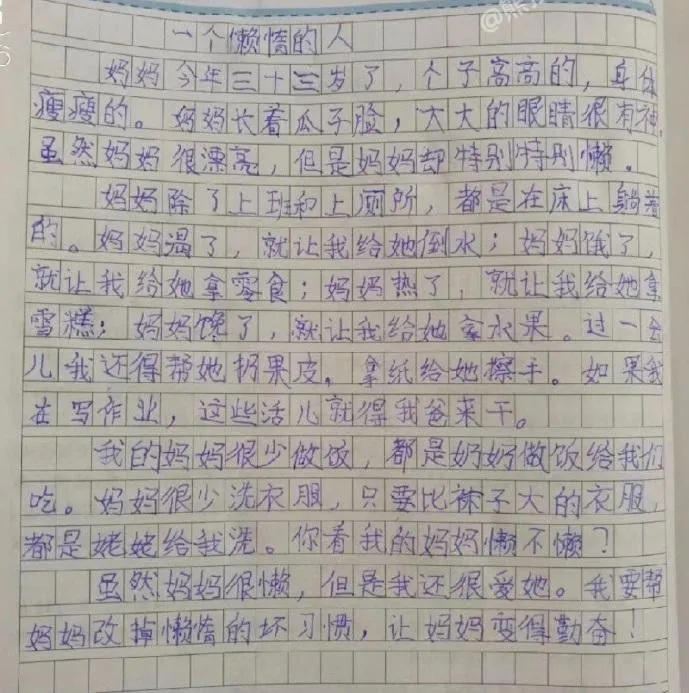 一个懒惰的人
妈妈今年三十三岁了，个子高高的，身体
瘦瘦的。妈妈长着瓜子脸，大大的眼睛很有神。
虽然妈妈很漂亮，但是妈妈却特别特别懒。
妈妈除了上班和上厕所，都是在床上躺着
的。妈妈渴了，就让我给她倒水；妈妈饿了，
就让我给她拿零食；妈妈热了，就让我给她拿
雪糕；妈妈馋了，就让我给她拿水果。过一会
儿我还得帮她扔果皮，拿纸给她擦手。如果我
在写作业，这些活儿就得我爸来干。
我的妈妈很少做饭，都是奶奶做饭给我们
吃。妈妈很少洗衣服，只要比袜子大的衣服，
都是姥姥给我洗。你看我的妈妈懒不懒？
虽然妈妈很懒，但是我还很爱她。我要帮
妈妈改掉懒惰的坏习惯，让妈妈变得勤奋！